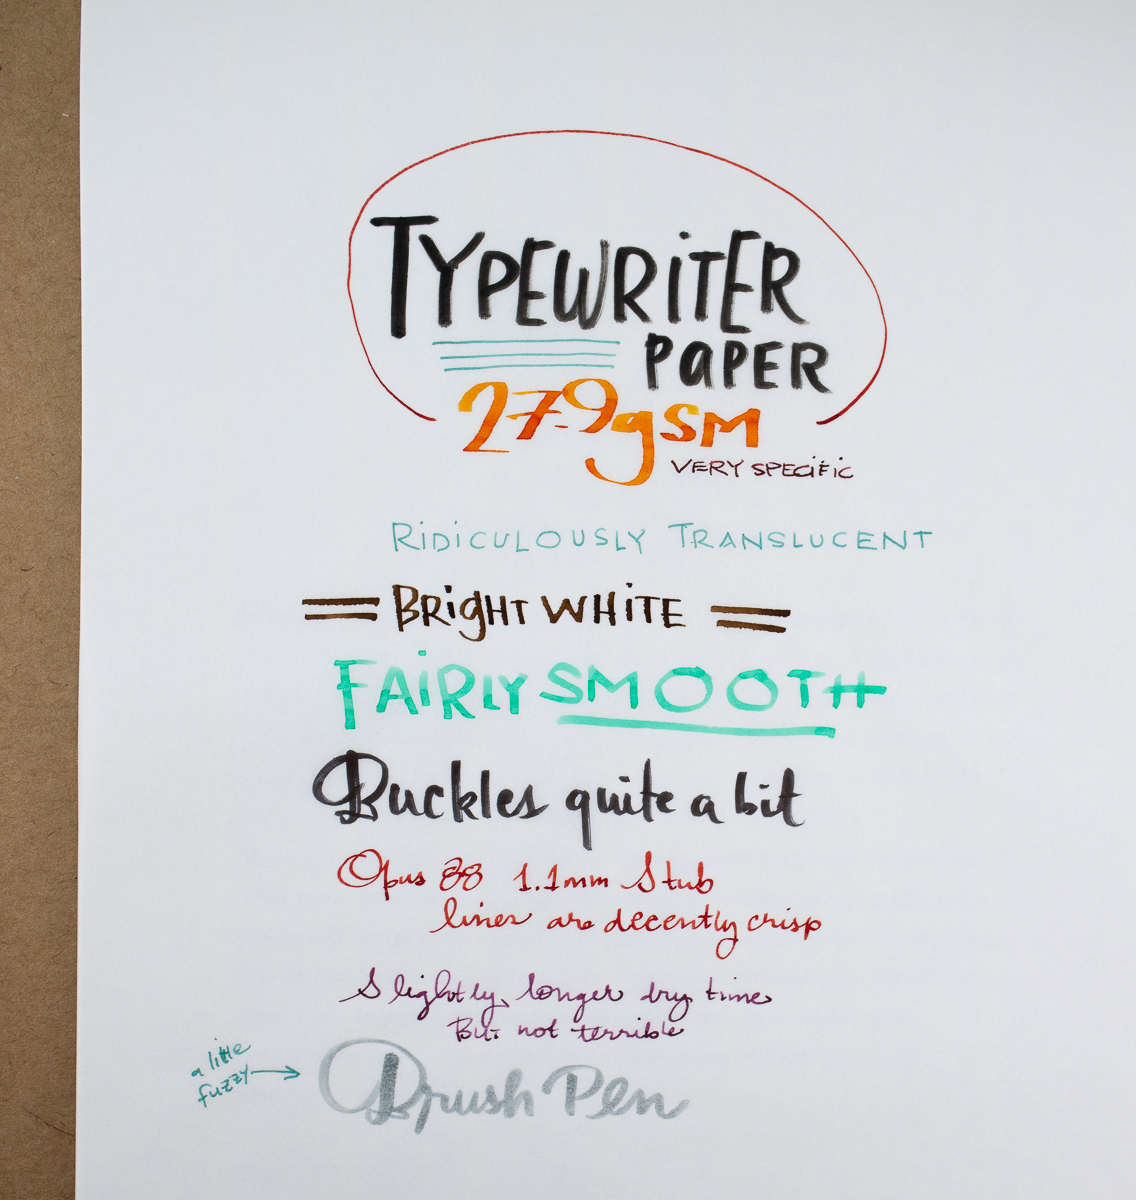 TYPEWRITER
PAPER
27.9gsm
VERY SPECIFIC
RIDICULOUSLY TRANSLUCENT
BRIGHT WHITE
FAIRLY SMOOTH
Buckles quite a bit
Opus 88 1.1mm Stub
lines are decently crisp
Slightly longer dry time
But not terrible
a little
fuzzy
Brush Pen